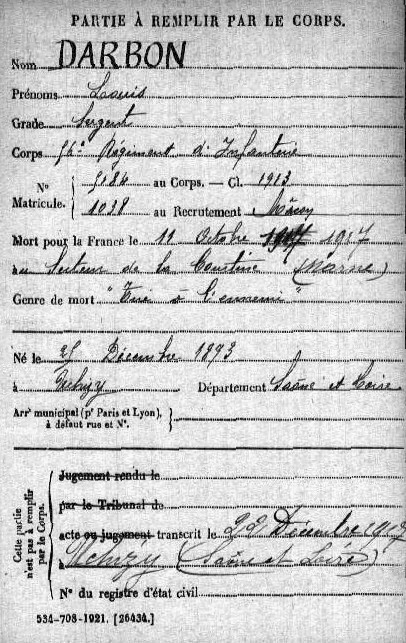 PARTIE À REMPLIR PAR LE CORPS.
Nom DARBON
Prénoms Louis
Grade Sergent
Corps 56e Régiment d'Infanterie
N° Matricule. 5184 au Corps. — Cl. 1913
1038 au Recrutement Mâcon
Mort pour la France le 11 Octobre 1917 1917
au Secteur de la Courtine (Marne)
Genre de mort "Tué à l'ennemi"
Né le 25 Décembre 1893
à Uchizy Département Saône et Loire
Arrt municipal (pr Paris et Lyon),
à défaut rue et N°.
Cette partie n'est pas à remplir par le Corps.
Jugement rendu le
par le Tribunal de
acte ou jugement transcrit le 22 Décembre 1917
à Uchizy (Saône et Loire)
N° du registre d'état civil
534-708-1921. [26434.]